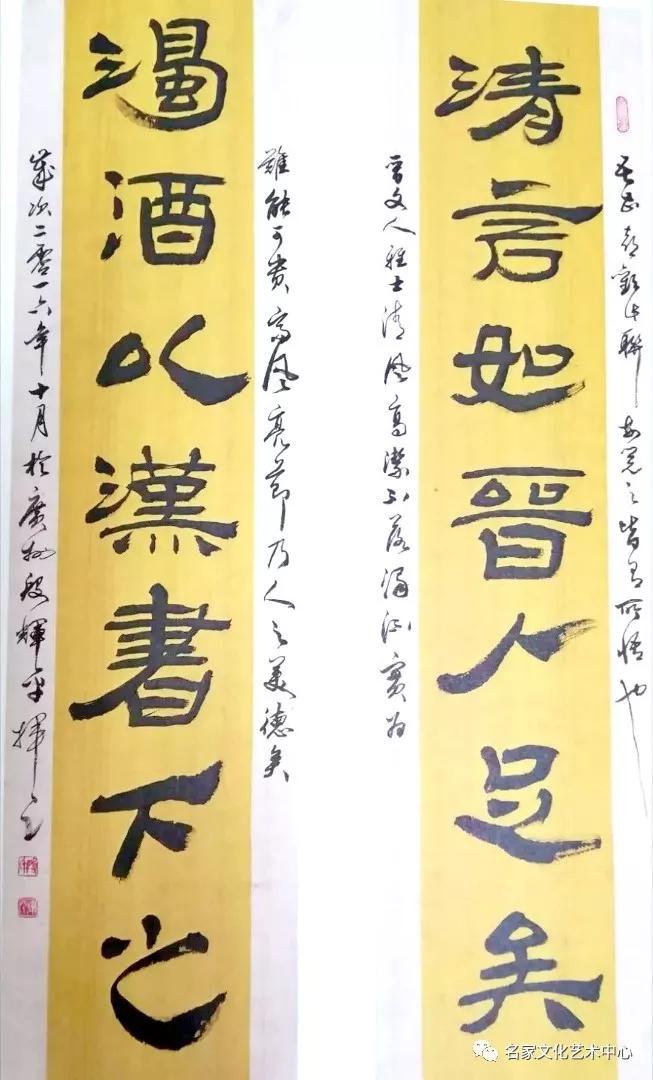 喜觀此聯每覽之皆有所悟也
清言如晉人足矣
晉文人雅士清風高潔不落濁泥實為
難能可貴高風亮節乃人之美德矣
濁酒以漢書下之
歲次二零一六年十月於廣州段輝平揮之
名家文化艺术中心